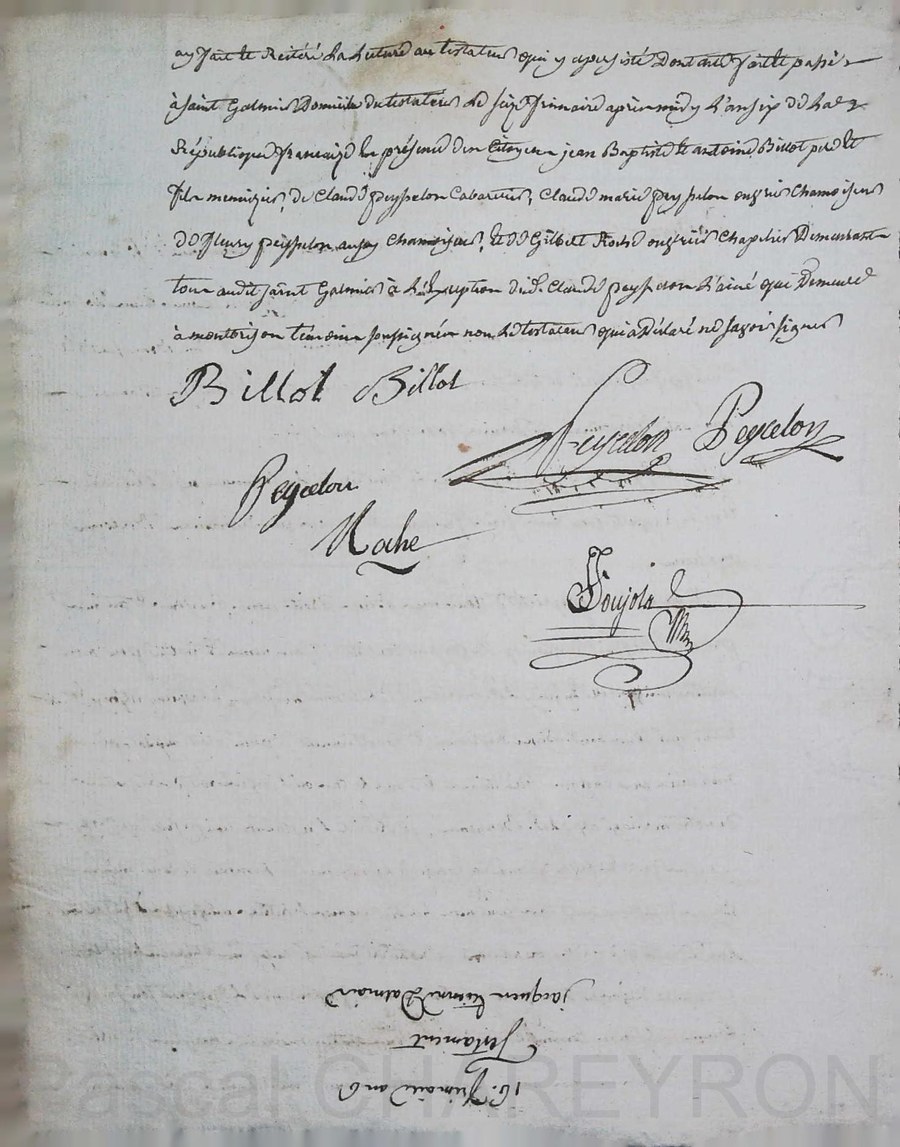 ay fait et Réitéré La Lecture au testateur qui y a persisté Dont acte fait et passé
à Saint Galmier Domicile du testateur Le seize frimaire après midy L'an six de La
République française En présence des Citoyens jean Baptiste et antoine Billot père et
fils menuisiers, de Claude peysselon Cabaretier, Claude marie peysselon ouvrier Chamoiseur
de fleury peysselon aussy Chamoiseur, et de Gilbert Roche ouvrier Chapelier Demeurants
tous audit Saint Galmier à L'Exception dud. Claude peysselon L'ainé qui Demeure
à montbrison témoins soussignés non Le testateur qui a Déclaré ne savoir signer
Billot Billot
Peycelon Peycelon
Peycelon
Roche
Soujola
16. frimaire an 6
Testament
jacques
Pascal CHAREYRON